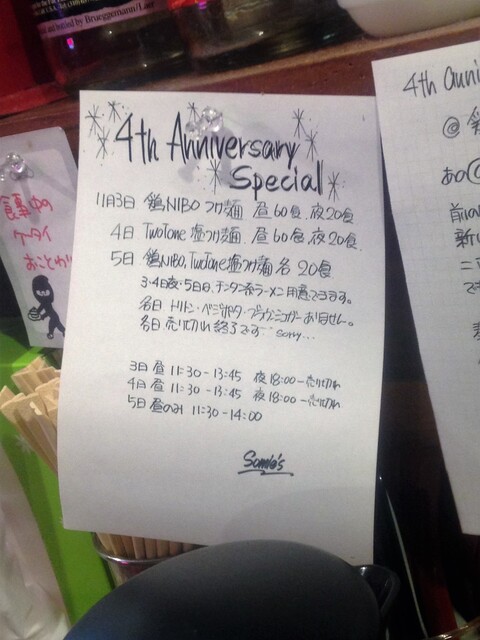 and bottled by Brueggemann/Luer
4th Anniversary
Special
11月3日 鶏NIBO つけ麺 昼60食、夜20食
4日 TwoTone塩つけ麺、昼60食、夜20食、
5日 鶏NIBO、TwoTone塩つけ麺 各20食
3・4日夜・5日は、チンタン系ラーメンご用意できます。
各日 売り切れ終了です sorry...
3日 昼 11:30-13:45 夜18:00-売り切れ
4日 昼 11:30-13:45 夜18:00-売り切れ
5日 昼のみ 11:30-14:00
食事中の
ケータイ
おことわり
4th anni
@
前
新し